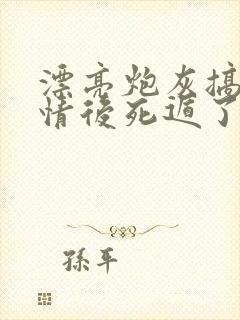 漂亮炮灰搞
情後死遁了
孫平